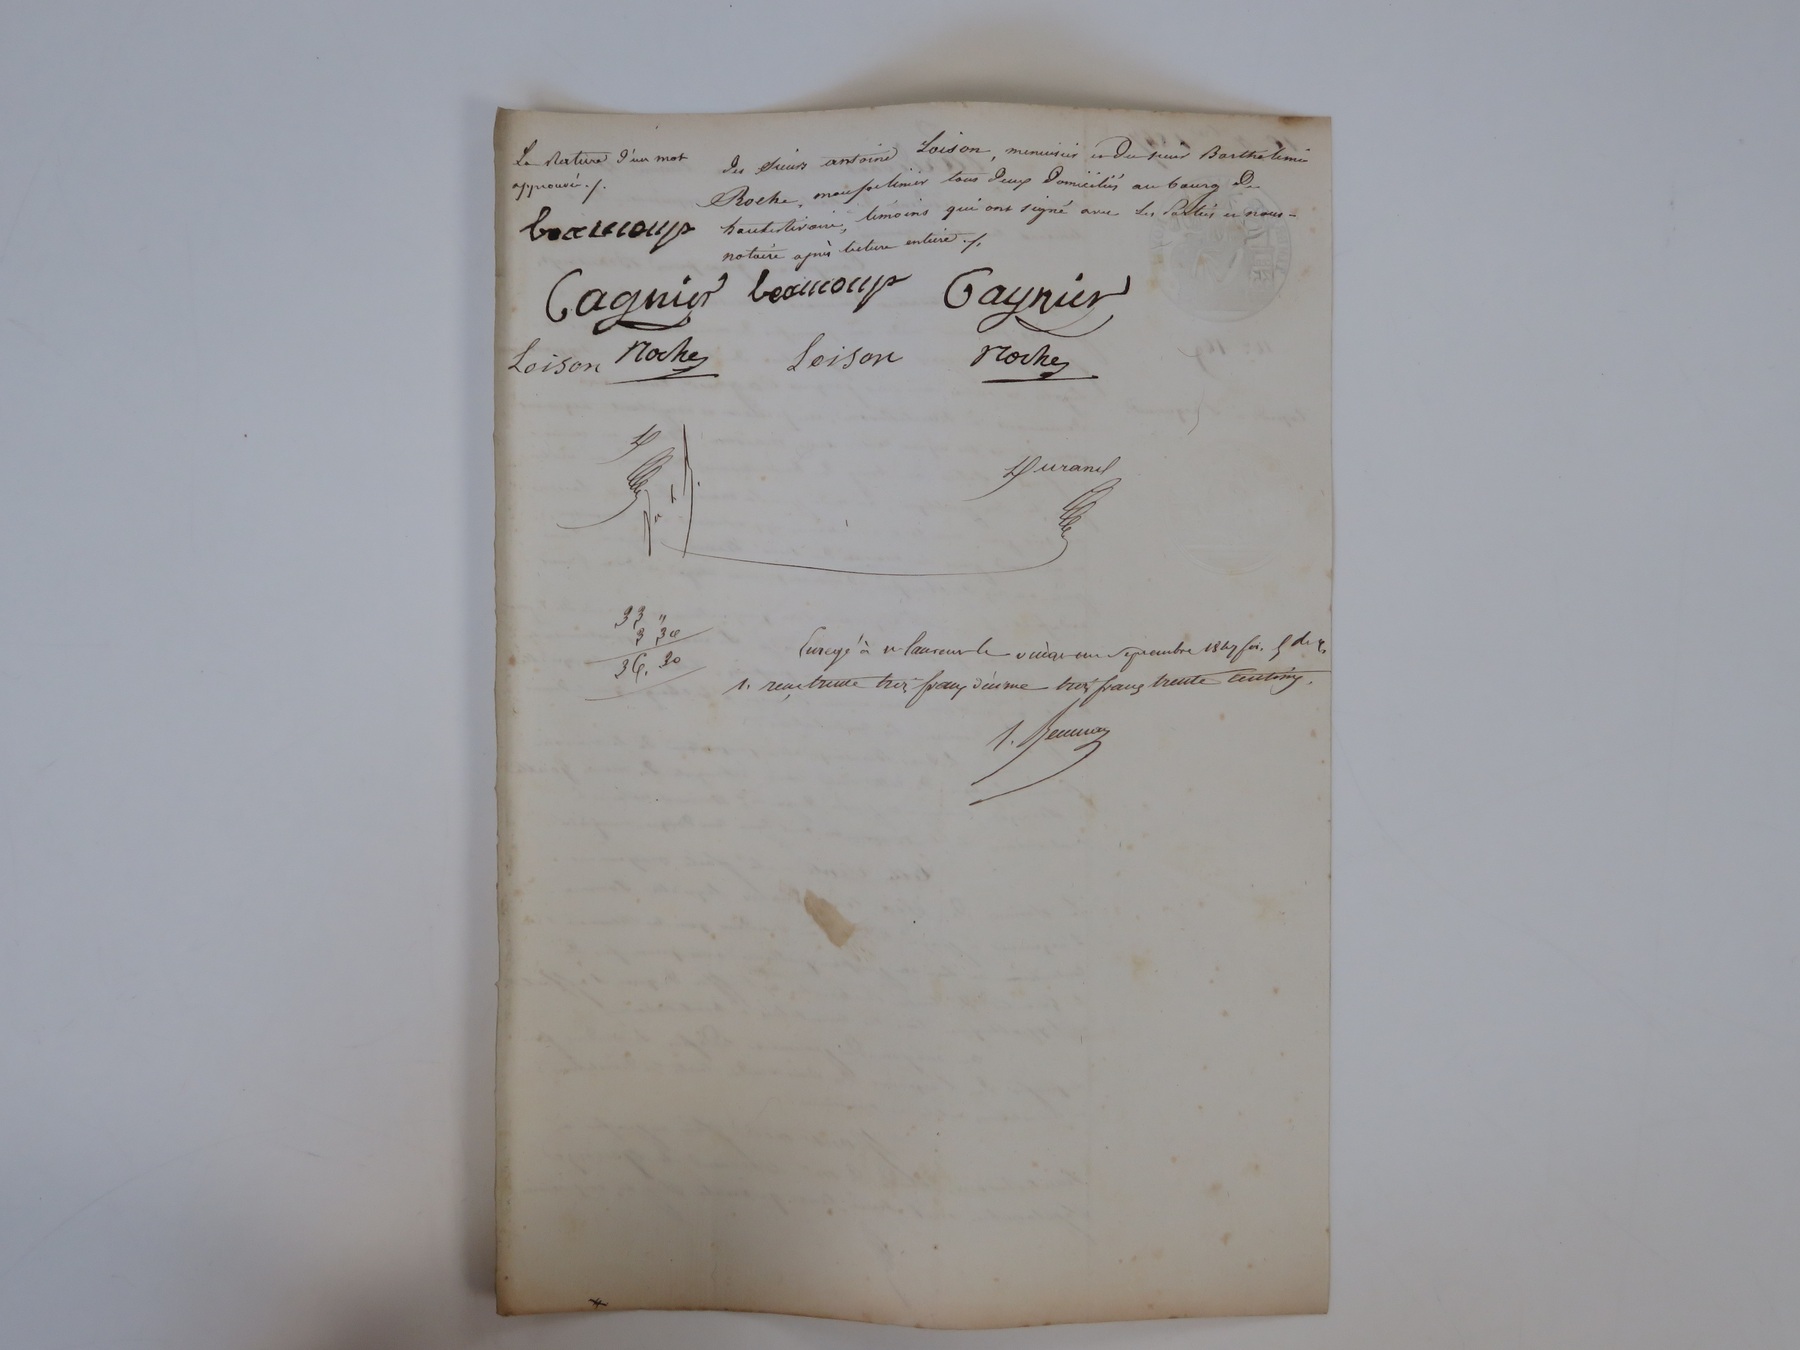 La rature d'un mot
approuvé ./.
beaucoup
des sieurs antoine Loison, menuisier et du sieur Barthelemi
Roche, tous deux domiciliés au bourg de
hauterivoire, témoins qui ont signé avec les parties et nous-
notaire après lecture entière ./.
Gagnier beaucoup Gagnier
Loison Roche Loison Roche
D
Durand
33 "
3 30
36. 30
Enregé à st Laurent le septembre 1847 fo. 5
r. reçu trente trois francs décime trois francs trente centimes.